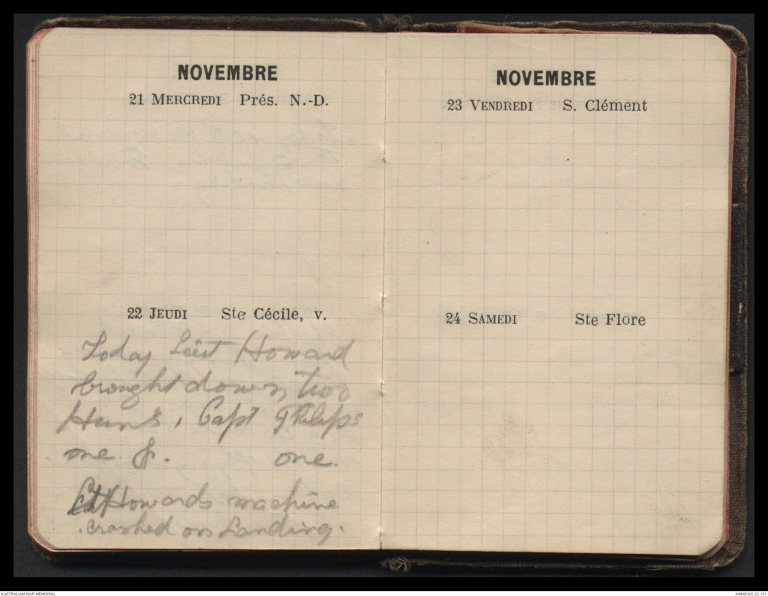 NOVEMBRE
21 MERCREDI Prés. N.-D.
22 JEUDI Ste Cécile, v.
Today Lieut Howard
brought down two
Huns, Capt Phillips
one &. one.
Howards machine
crashed on Landing.
NOVEMBRE
23 VENDREDI S. Clément
24 SAMEDI Ste Flore
AUSTRALIAN WAR MEMORIAL